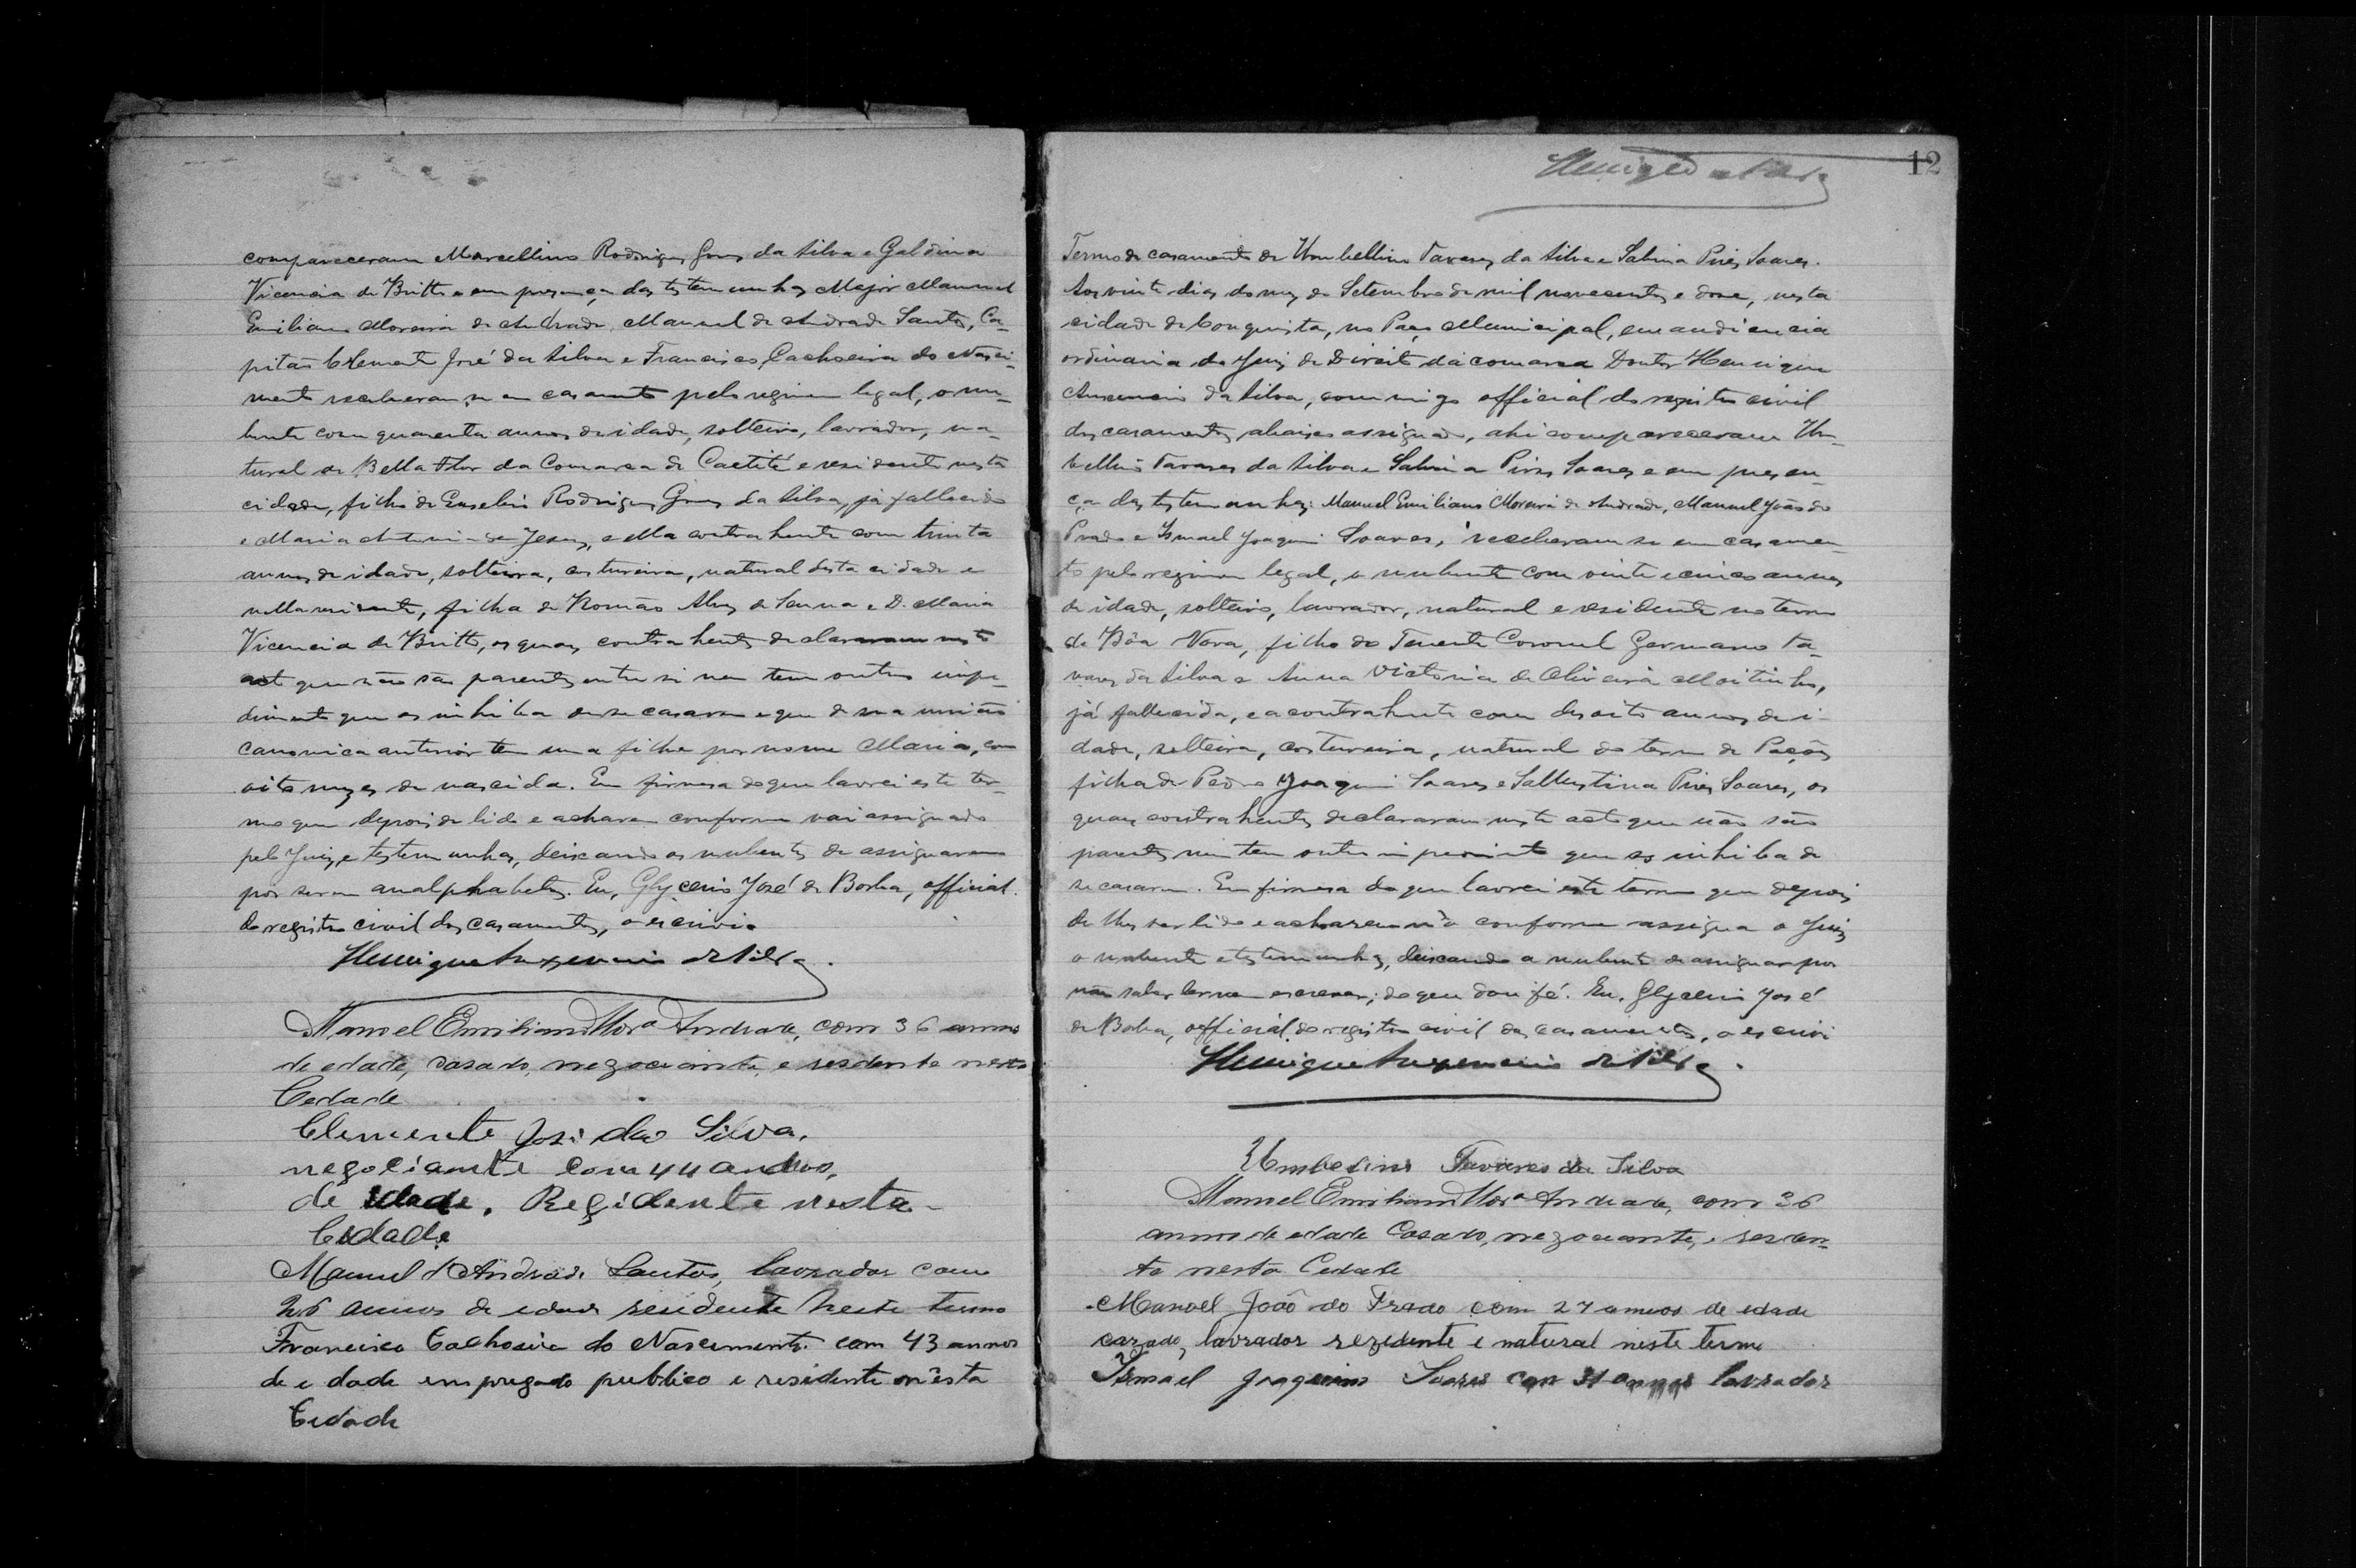 compareceram Marcellino Rodrigues Gomes da Silva e Galdina
Vicencia de Britto e em presença das testemunhas Major Manuel
Emiliano Moreira de Andrade, Manuel de Andrade Santos, Ca-
pitão Clemente José da Silva e Francisco Cachoeira do Nasci-
mento receberam se em casamento pelo regimen legal, o nu-
bente com quarenta annos de idade, solteiro, lavrador, na-
tural de Bella Flor da Comarca de Caetité e residente nesta
cidade, filho de Eusebio Rodrigues Gomes da Silva, já fallecido
e Maria Antonia de Jesus, e Ma contrahente com trinta
annos de idade, solteira, costureira, natural desta cidade e
nella residente, filha de Romão Alves de Senna e D. Maria
Vicencia de Britto, os quaes contrahentes declararam neste
acto que não são parentes entre si nem tem outros impe-
dimento que os inhiba de se casarem e que de sua união
canonica anterior tem uma filha por nome Maria, com
oito mezes de nascida. Em firmesa do que lavrei este ter-
mo que depois de lido e acharem conforme vai assignado
pelo Juiz e testemunhas, deixando os nubentes de assignarem
por serem analphabetos. Eu, Glycerio José de Borba, official
do registro civil dos casamentos, o escrivi
Henrique Auxencio da Silva.
Manoel Emiliano Mora Andrade, com 36 annos
de edade, casado, negociante, e residente nesta
Cedade
Clemente José da Silva,
negociante com 44 annos,
de idade, Rezidente nesta
Cidade
Manuel d'Andrade Santos, lavrador com
26 annos de edade residente neste termo
Francisco Cachoeira do Nascimento com 43 annos
de edade empregado publico e residente nésta
Cidade
12
Termo de casamento de Umbellino Tavares da Silva e Sabina Pires Soares.
Aos vinte dias do mez de Setembro de mil novecentos e doze, nesta
cidade de Conquista, no Paço Municipal, em audiencia
ordinaria do Juiz de Direito da comarca Doutor Henrique
Auxencio da Silva, commigo official do registro civil
dos casamentos abaixo assignado, ahi compareceram Um-
bellino Tavares da Silva e Sabina Pires Soares e em presen-
ça das testemunhas: Manuel Emiliano Moreira de Andrade, Manuel João do
Prado e Ismael Joaquim Soares, receberam se em casamen-
to pelo regimen legal, o nubente com vinte e cinco annos
de idade, solteiro, lavrador, natural e residente no termo
de Bôa Nova, filho do Tenente Coronel Germano Ta-
vares da Silva e Anna Victoria de Oliveira Moitinho,
já fallecida, e a contrahente com desoito annos de i-
dade, solteira, costureira, natural do termo de Poções
filha de Pedro Joaquim Soares e Sallustina Pires Soares, os
quaes contrahentes declararam neste acto que não são
parentes nem tem outro impedimento que os inhiba de
se casarem. Em firmesa do que lavrei este termo que depois
de lhes ser lido e acharem conforme assigna o Juiz
o nubente e testemunhas, deixando a nubente de assignar por
não saber ler nem escrever; do que dou fé. Eu, Glycerio José
de Borba, official do registro civil dos casamentos, o escrivi
Henrique Auxencio da Silva.
Umbelino Tavares da Silva
Manoel Emiliano Mora Andrade, com 36
annos de edade Casado, negociante, e residen-
te nesta Cedade
Manoel João do Prado com 27 annos de edade
cazado, lavrador rezidente e natural neste termo
Ismael Joaquim Soares com 31 annos lavrador